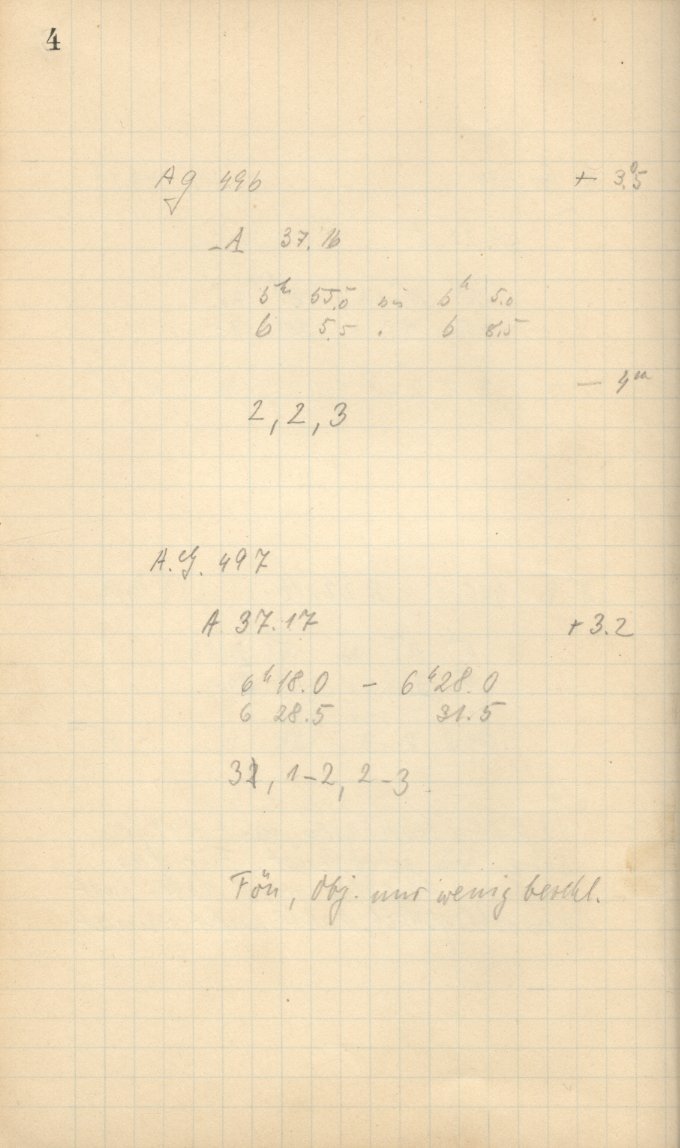 4
AG 496 + 3.⁰5
A 37.16
5ʰ 55.0 bis 6ʰ 5.0
6 5.5 . 6 8.5
— 4ᵐ
2, 2, 3
A.G. 497
A 37.17 + 3.2
6ʰ 18.0 – 6ʰ 28.0
6 28.5 31.5
3, 1–2, 2–3
Fön, Obj. nur wenig beschl.